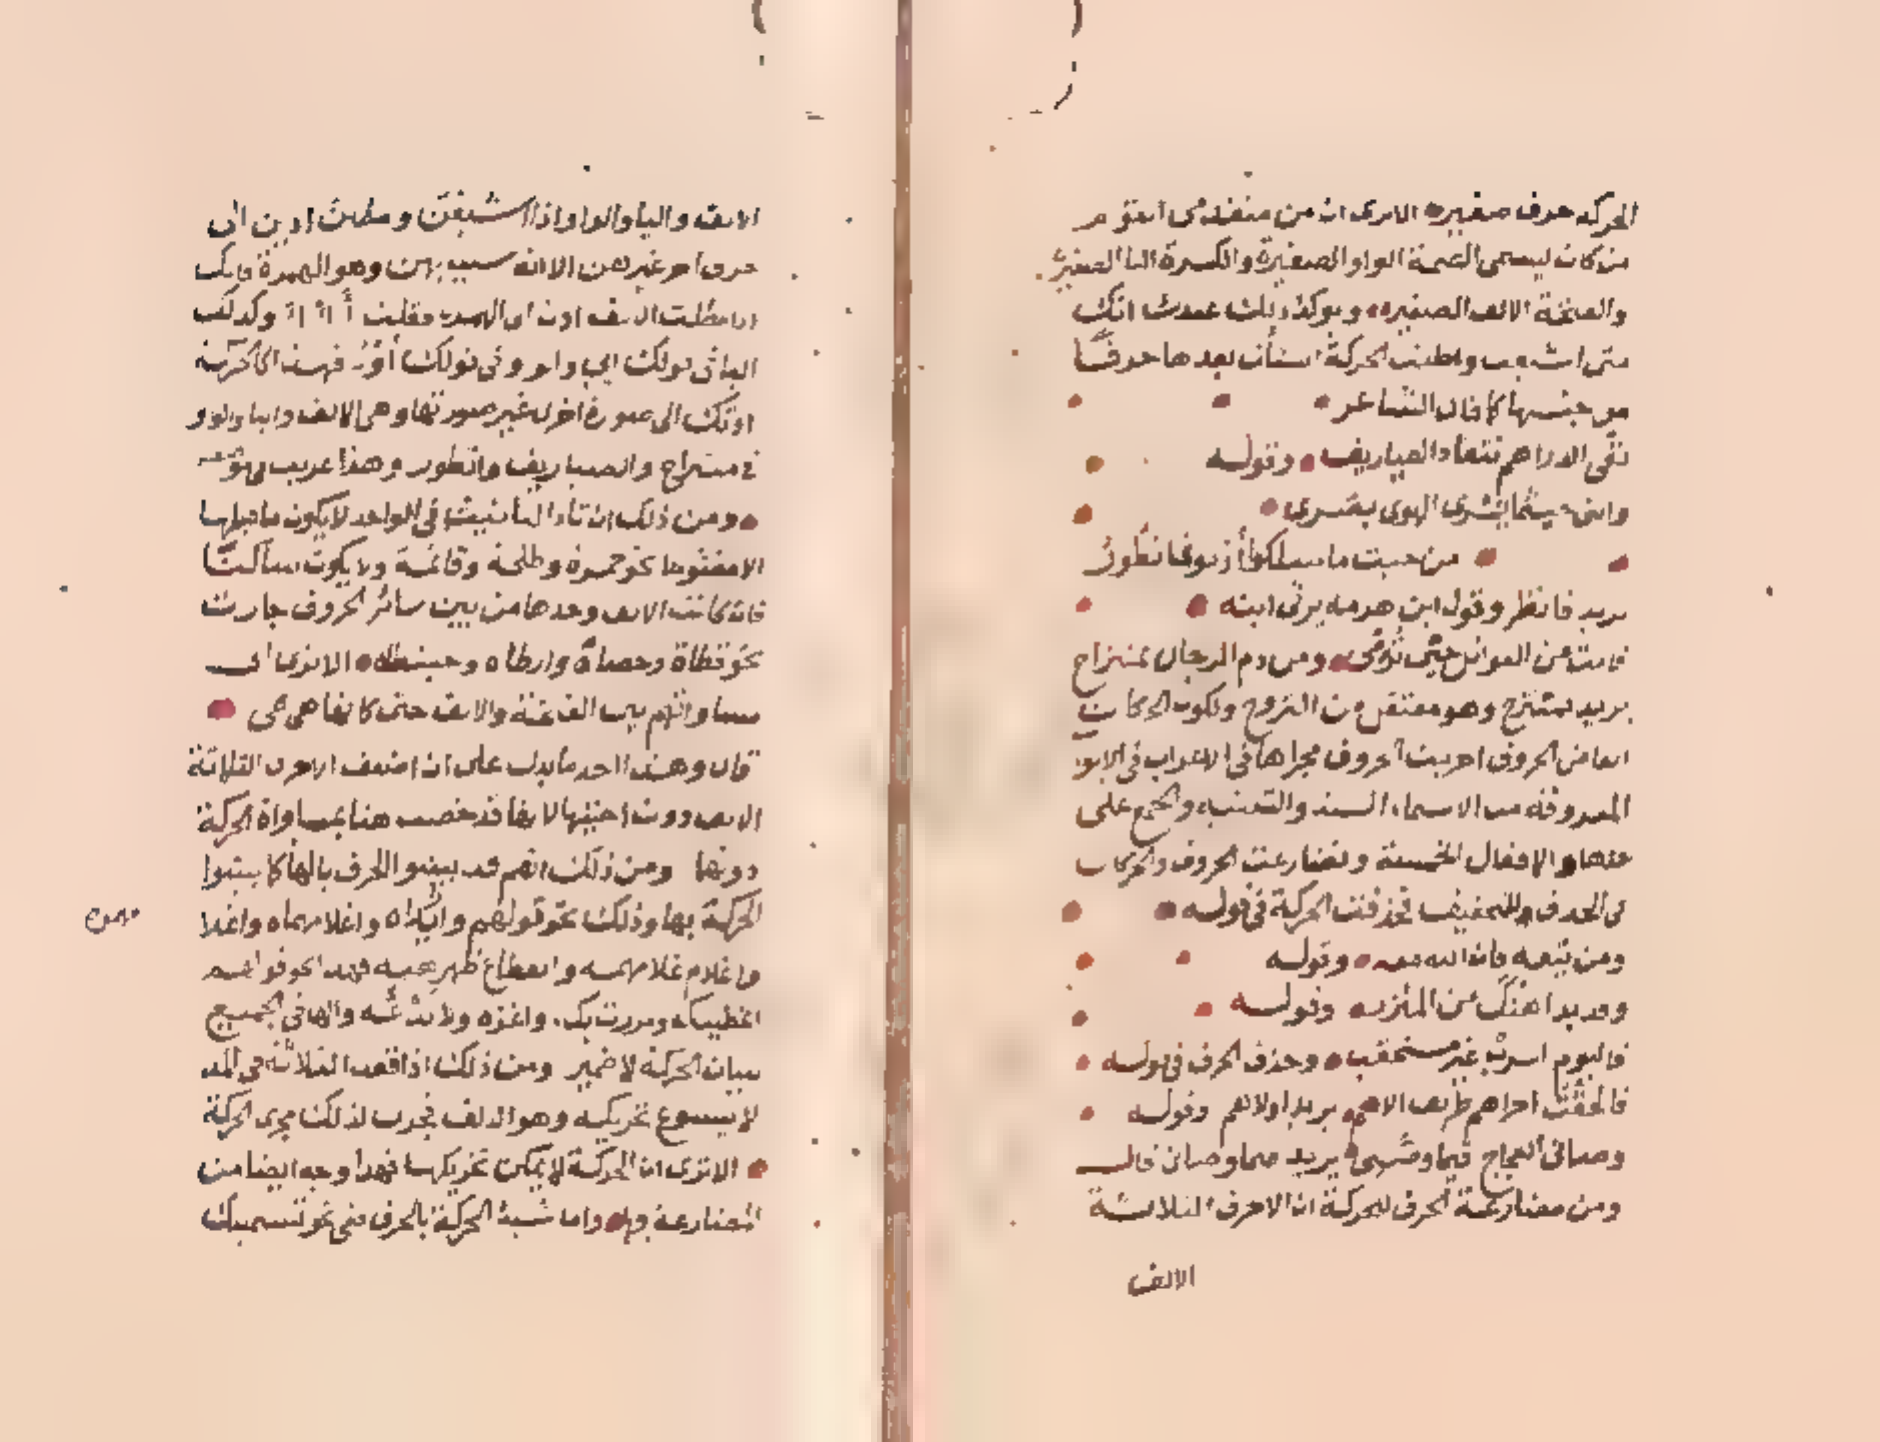 الحركة حرف صغيره الاترى ان من متقدمى القوم
من كان يسمى الضمة الواو الصغيرة والكسرة اليا الصغيرة
والفتحة الالف الصغيره ويوكد ذلك عندك انك
متى اشبعت ومطلت الحركة انشأت بعدها حرفًا
من جنسها كما قال الشاعر
نفى الدراهم تنقاد الصياريف وقوله
واننى حيثما يشرى الهوى بصرى
من حيث ما سلكوا أدنو فانظور
يريد فانظر وقول ابن هرمه يرثى ابنه
فانت من الغوائل حين تُرمى ومن ذم الرجال بمنتزاح
يريد بمنتزح وهو مفتعل من النزوح ولكون الحركات
ابعاض الحروف اجريت الحروف مجراها فى الاعراب فى الابو
المعروفة من الاسماء الستة والتثنيه والجمع على
حدها والافعال الخمسة وتضارعت الحروف والحركات
فى الحذف والتخفيف فحذفت الحركة فى قوله
ومن يتقه فان الله معه وقوله
وقد بدا هنْكِ من المئزر وقوله
فاليوم اسربْ غير مستحقب وحذف الحرف فى قوله
فالحقت اخراهم طريق الاهم يريد اولاهم وقوله
وصانى العجاج فيما وصَّنى يريد فيما وصانى قال
ومن مضارعة الحرف للحركة ان الاحرف الثلاثة
الالف
الالف واليا والواو اذا اشبعن ومطلن ادين الى
حرف اخر غيرهن الا انه شبيه بهن وهو الهمزة فانك
اذا مطلت الالف ادت الى الهمزة فقلت أاا وكذلك
اليا فى قولك اىء واو وفى قولك أوء فهذا كالحركة
ادتك الى صورة اخرى غير صورتها وهى الالف واليا والواو
فى منتزاح والصياريف وانظور وهذا غريب فى
ومن ذلك ان تاء التأنيث فى الواحد لا يكون ما قبلها
الا مفتوحا نحو حمزة وطلحة وقائمة ولا يكون ساكنًا
فان كانت الالف وحدها من بين سائر الحروف جازت
نحو قطاة وحصاة وارطاه وحبنطاه الاترى الى
مساواتهم بين الفتحة والالف حتى كانها هى هى
قال وهذا احد ما يدل على ان اضعف الاحرف الثلاثة
الالف دون اختيها لانها قد خصت هنا بمساواة الحركة
دونها ومن ذلك انهم قد بينوا الحرف بالها كما بينوا
الحركة بها وذلك نحو قولهم وازيداه واغلامهماه واغلا
واغلام غلامهمه وانقطاع ظهرهيه فهذا نحو قولهم
اعطيتكه ومررت بكه واغزه ولا تدعه والها فى الجميع
بيان الحركة لا ضمير ومن ذلك اذا اقعد الثلاثة فى المد
لا يسوغ تحريكه وهو الالف فجرت لذلك مجرى الحركة
الاترى ان الحركة لا يمكن تحريكها فهذا وجه ايضا من
المضارعة واما شبه الحركة بالحرف ففى نحو تسميتك